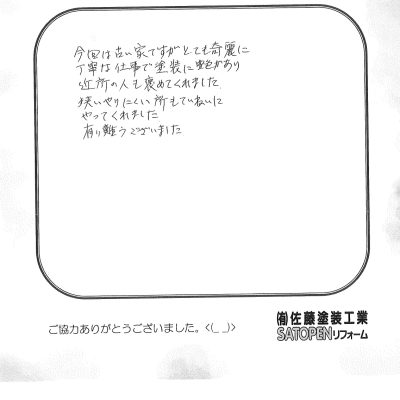 今回は古い家ですがとても奇麗に
丁寧な仕事で塗装に艶があり
近所の人も褒めてくれました
狭いやりにくい所もていねいに
やってくれました
有り難うございました
ご協力ありがとうございました。<(_ _)>
㈲佐藤塗装工業
SATOPENリフォーム